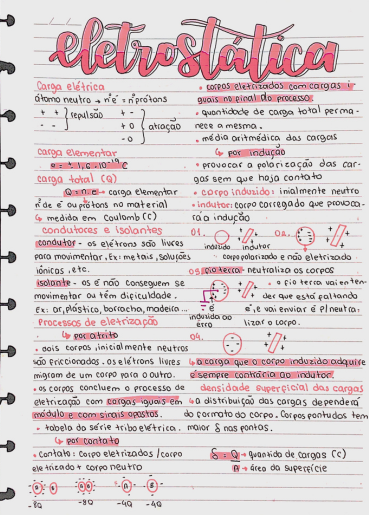 eletrostática
Carga elétrica
átomo neutro → nº é = nº prótons
+ + } repulsão
- -
+ - } atração
+ 0
- 0
Carga elementar
e = ± 1,6 · 10⁻¹⁹ C
carga total (Q)
Q = n · e → carga elementar
nº de é ou prótons no material
↳ medida em Coulomb (C)
condutores e isolantes
condutor - os elétrons são livres
para movimentar. Ex: metais, soluções
iônicas, etc.
isolante - os é não conseguem se
movimentar ou têm dificuldade.
Ex: ar, plástico, borracha, madeira...
Processos de eletrização
↳ por atrito
• dois corpos, inicialmente neutros
são friccionados. os elétrons livres
migram de um corpo para o outro.
• os corpos concluem o processo de
eletrização com cargas iguais em
módulo e com sinais opostos.
• tabela da série tribo elétrica.
↳ por contato
• Contato: corpo eletrizados / corpo
eletrizado + corpo neutro
-8Q -8Q -4Q -4Q
• corpos eletrizados com cargas i-
guais no final do processo.
• quantidade de carga total perma-
nece a mesma.
• média aritmédica das cargas
↳ por indução
• provocar a polarização das car-
gas sem que haja contato
• corpo induzido: inialmente neutro
• indutor: corpo carregado que provoca-
rá a indução
01. 02.
induzido indutor
corpo polarizado e não eletrizado
03. fio terra - neutraliza os corpos
• o fio terra vai enten-
der que está faltando
é, e vai enviar é p/ neutra-
lizar o corpo.
04.
↳ a carga que o corpo induzido adquire
é sempre contrária ao indutor.
densidade superficial das cargas
↳ a distribuição das cargas dependerá
do formato do corpo. Corpos pontudos tem
maior δ nas pontas.
δ = Q → quantida de cargas (C)
A → área da superfície